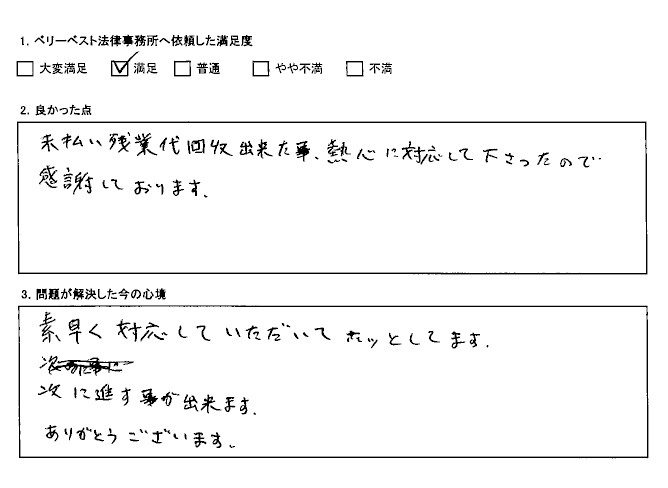 1. ベリーベスト法律事務所へ依頼した満足度
□ 大変満足 ☑ 満足 □ 普通 □ やや不満 □ 不満
2. 良かった点
未払い残業代回収出来た事、熱心に対応して下さったので
感謝しております。
3. 問題が解決した今の心境
素早く対応していただいてホッとしてます。
次に進す事が出来ます。
ありがとうございます。